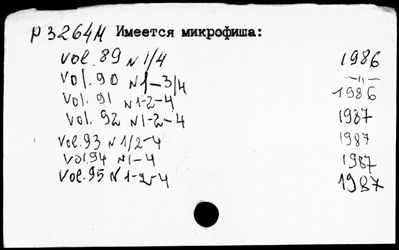 р3264м Имеется микрофиша:
vol. 89 N 1/4 1986
vol. 90 N 1-3/4 -"-
vol. 91 N 1-2-4 1986
vol. 92 N 1-2-4 1987
vol. 93 N 1/2-4 1987
vol. 94 N 1-4 1987
vol. 95 N 1-2-4 1987